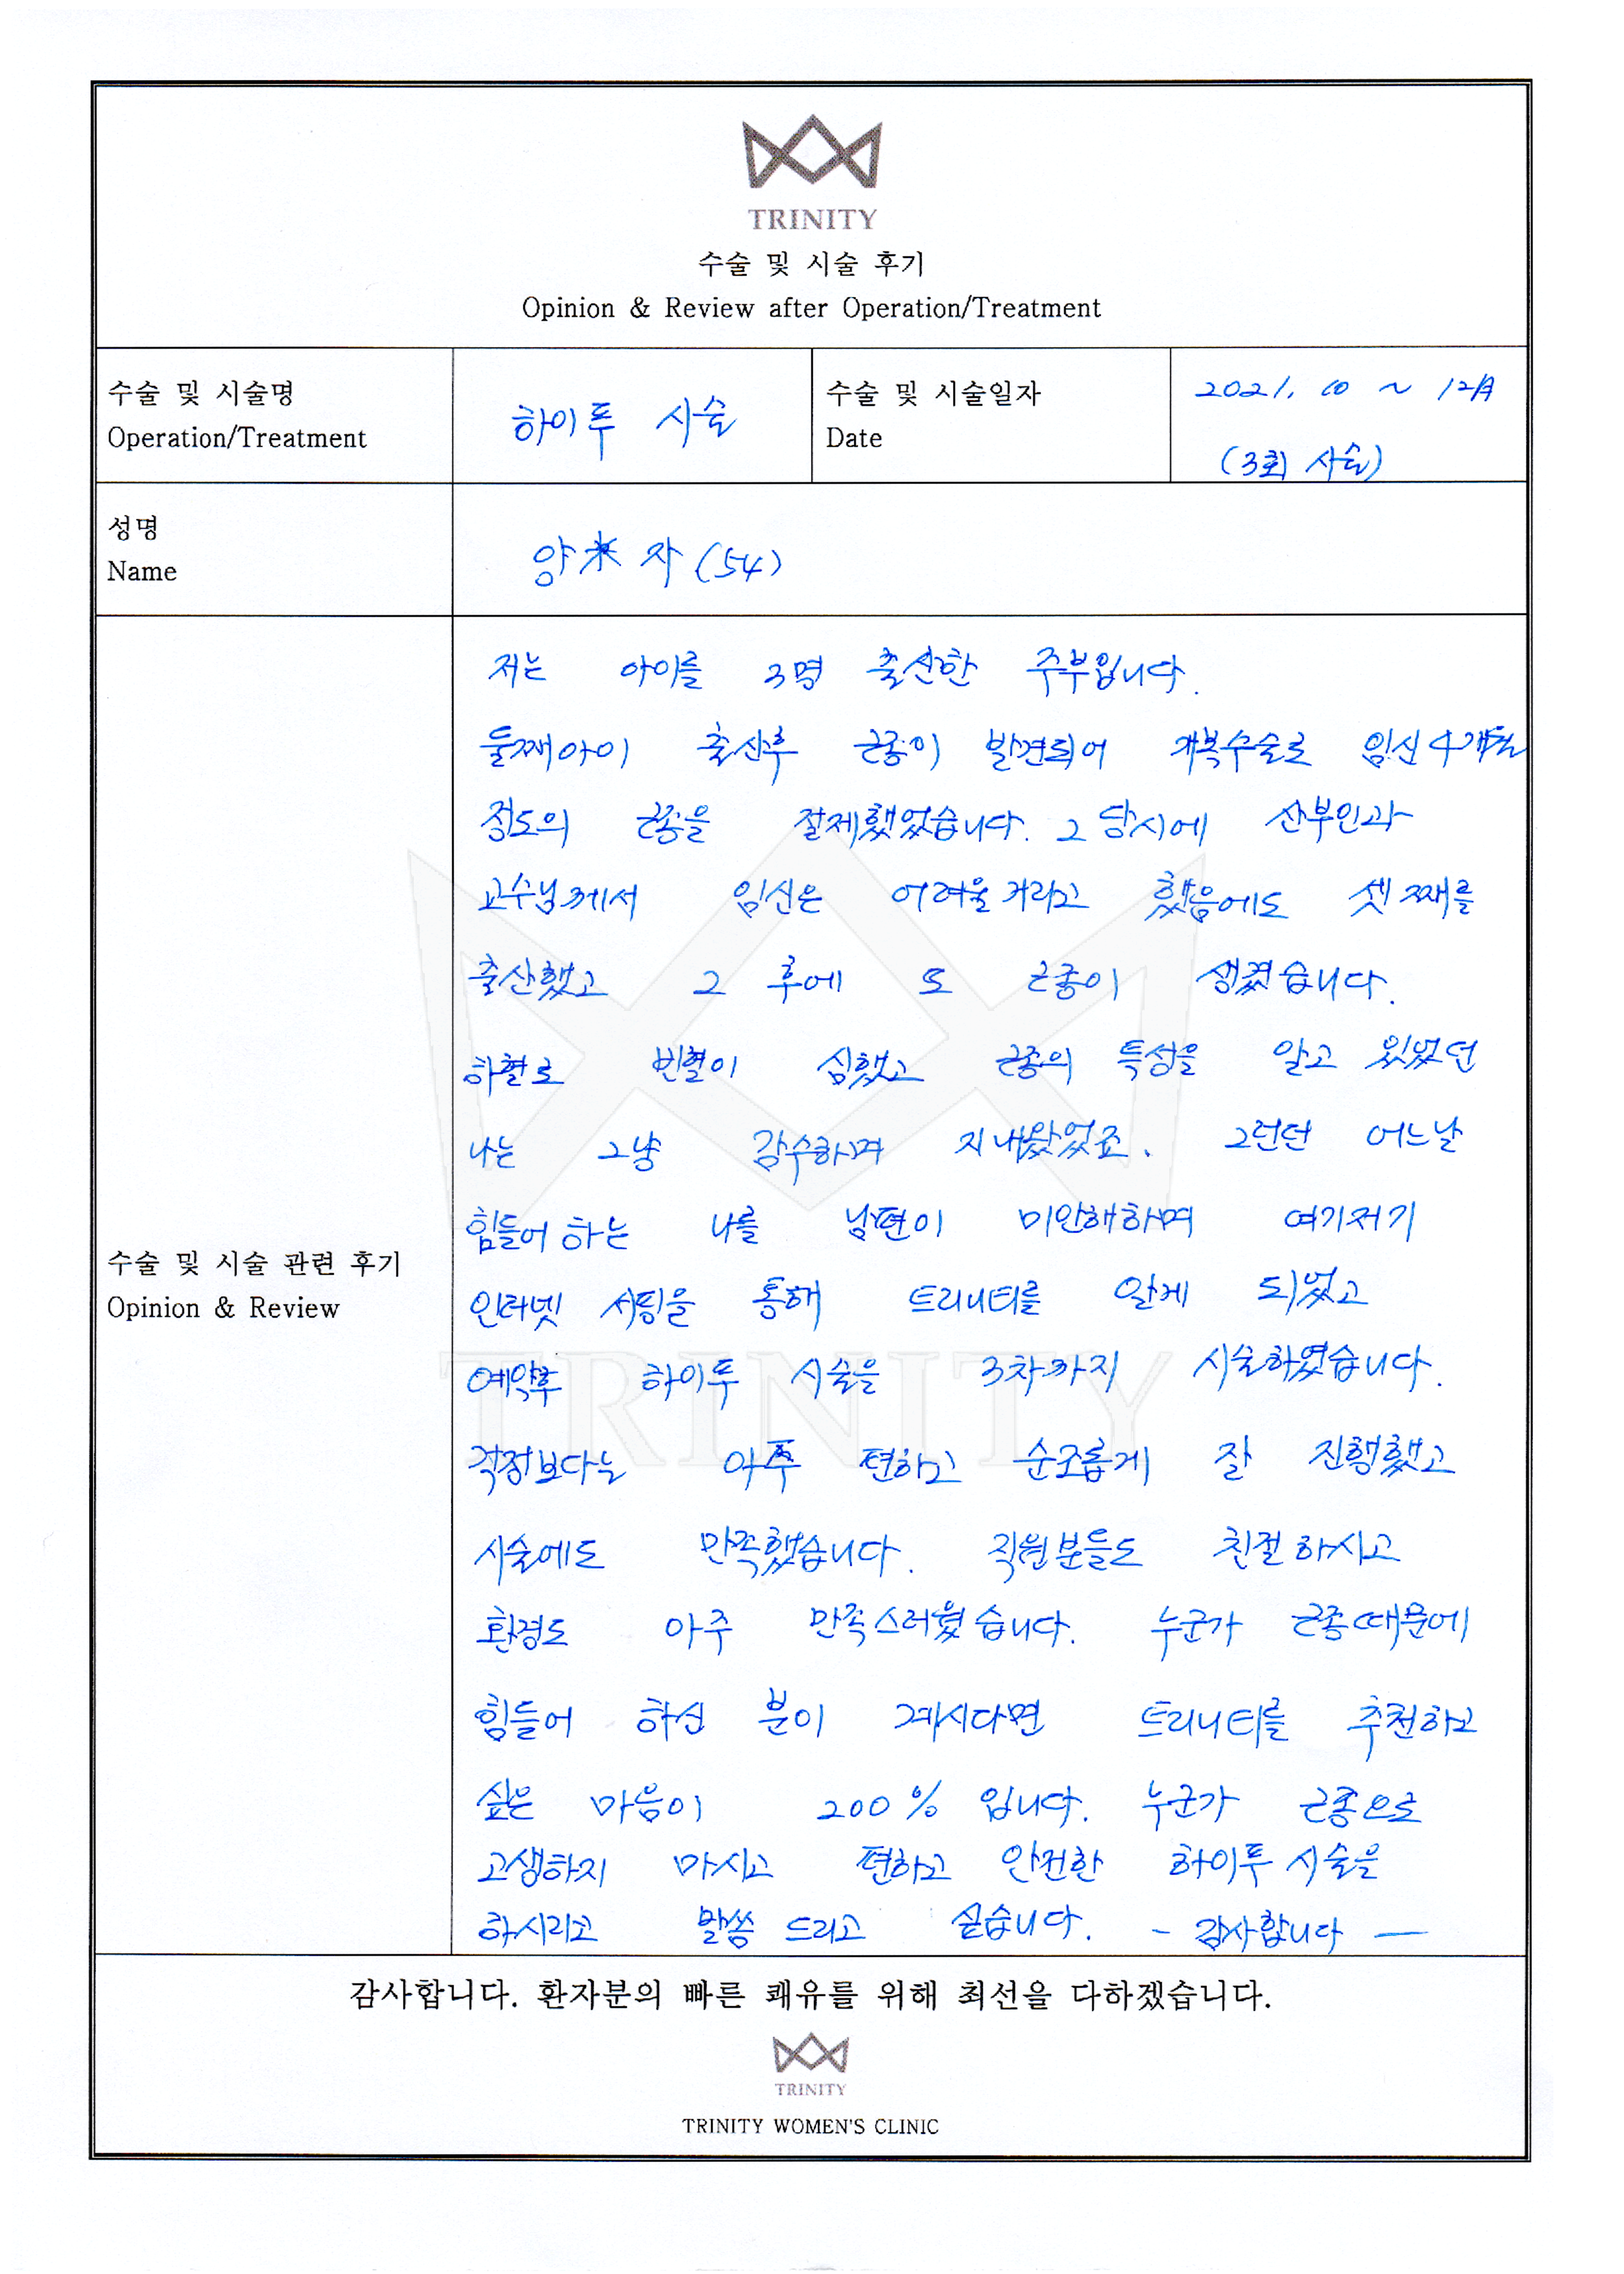 TRINITY
수술 및 시술 후기
Opinion & Review after Operation/Treatment
수술 및 시술명
Operation/Treatment
하이푸 시술
수술 및 시술일자
Date
2021. 10 ~ 12月
(3회 시술)
성명
Name
양*자 (54)
수술 및 시술 관련 후기
Opinion & Review
저는 아이를 3명 출산한 주부입니다.
둘째아이 출산후 근종이 발견되어 개복수술로 임신 4개월
정도의 근종을 절제했었습니다. 그 당시에 산부인과
교수님께서 임신은 어려울거라고 했음에도 셋째를
출산했고 그 후에 또 근종이 생겼습니다.
하혈로 빈혈이 심했고 근종의 특성을 알고 있었던
나는 그냥 감수하며 지내왔었죠. 그런던 어느날
힘들어 하는 나를 남편이 미안해하며 여기저기
인터넷 서핑을 통해 트리니티를 알게 되었고
예약후 하이푸 시술을 3차까지 시술하였습니다.
걱정보다는 아주 편하고 순조롭게 잘 진행했고
시술에도 만족했습니다. 직원분들도 친절하시고
환경도 아주 만족스러웠습니다. 누군가 근종때문에
힘들어 하신 분이 계시다면 트리니티를 추천하고
싶은 마음이 200% 입니다. 누군가 근종으로
고생하지 마시고 편하고 안전한 하이푸 시술을
하시라고 말씀 드리고 싶습니다. - 감사합니다 -
TRINITY
감사합니다. 환자분의 빠른 쾌유를 위해 최선을 다하겠습니다.
TRINITY
TRINITY WOMEN'S CLINIC